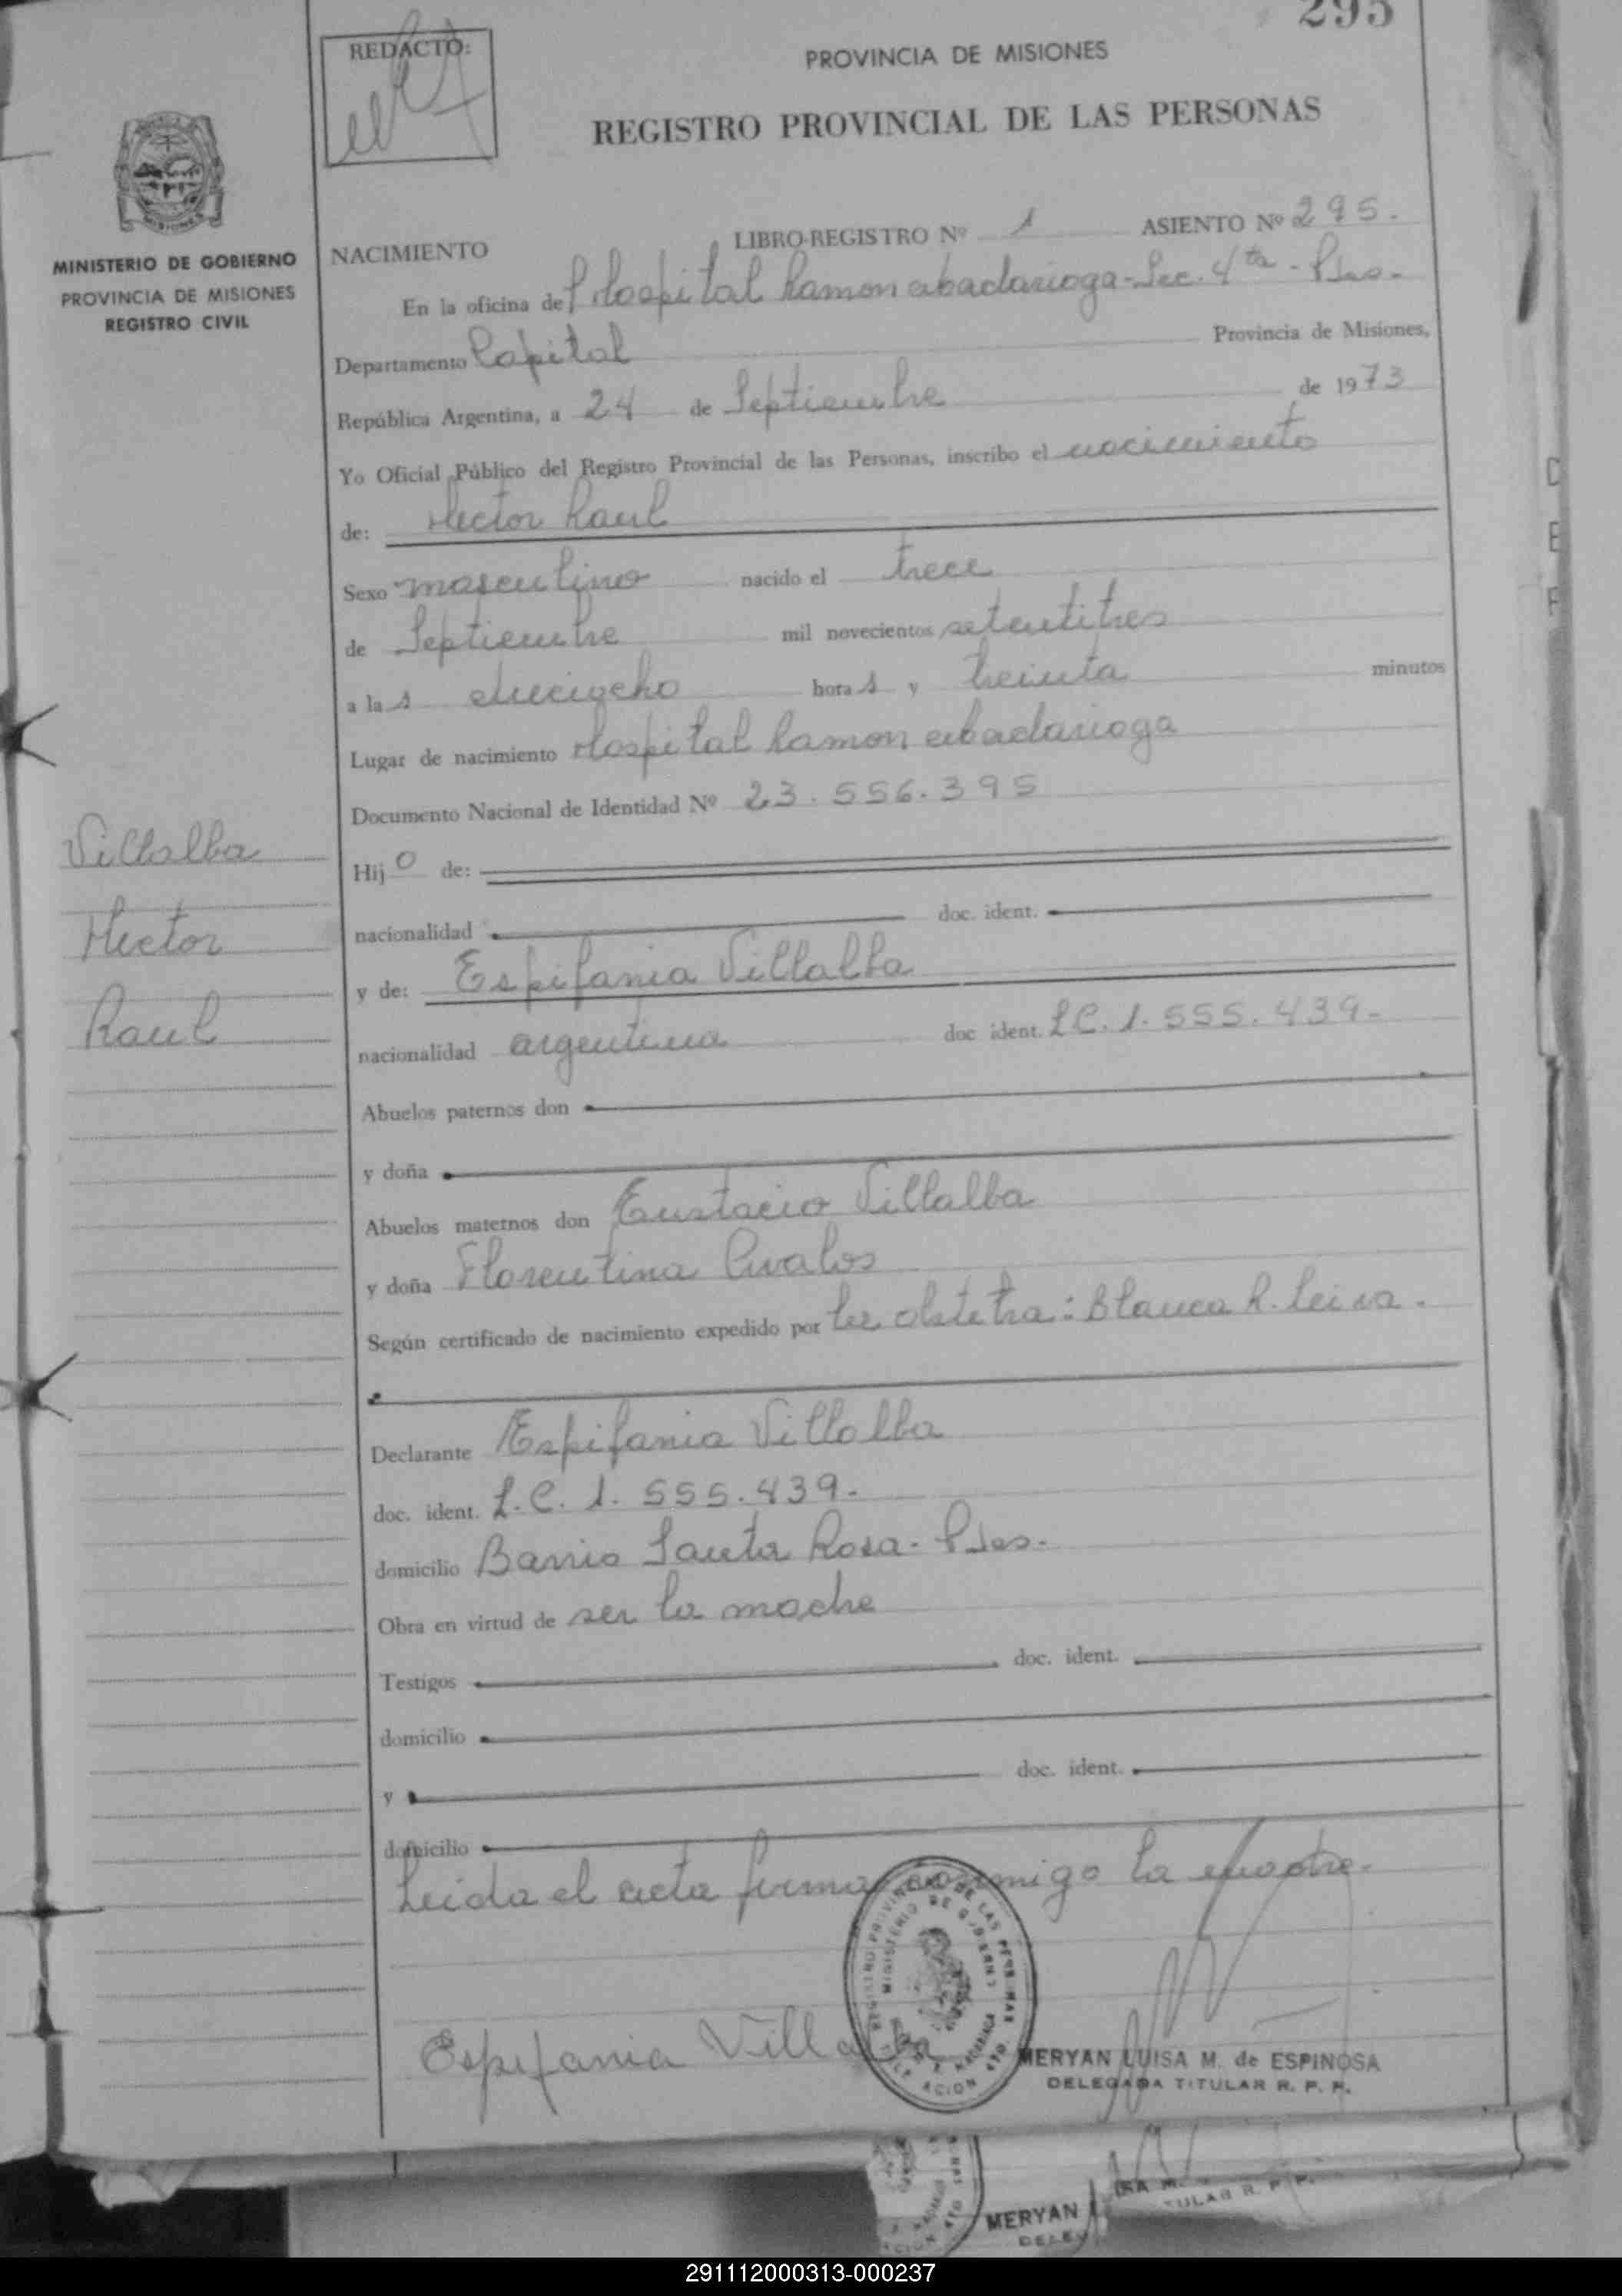 295
REDACTO:
PROVINCIA DE MISIONES
REGISTRO PROVINCIAL DE LAS PERSONAS
MINISTERIO DE GOBIERNO
PROVINCIA DE MISIONES
REGISTRO CIVIL
NACIMIENTO LIBRO-REGISTRO Nº 1 ASIENTO Nº 295.
En la oficina de Hospital Ramon Abadarioga-Sec. 4ta - Pdas.
Departamento Capital Provincia de Misiones,
República Argentina, a 24 de Septiembre de 1973
Yo Oficial Público del Registro Provincial de las Personas, inscribo el nacimiento
de: Hector Raul
Sexo masculino nacido el trece
de Septiembre mil novecientos setentitres
a las dieciocho horas y treinta minutos
Lugar de nacimiento Hospital Ramon Abadarioga
Documento Nacional de Identidad Nº 23.556.395
Villalba
Hector
Raul
Hijo de:
nacionalidad doc. ident.
y de: Espifania Villalba
nacionalidad argentina doc ident. L.C. 1.555.439.-
Abuelos paternos don
y doña
Abuelos maternos don Eustacio Villalba
y doña Florentina Avalos
Según certificado de nacimiento expedido por la obstetra: Blanca R. Leiva.
Declarante Espifania Villalba
doc. ident. L.C. 1.555.439.-
domicilio Barrio Santa Rosa- Pdas.
Obra en virtud de ser la madre
Testigos doc. ident.
domicilio
y doc. ident.
domicilio
Leida el acta firma conmigo la madre.
Espifania Villalba
MERYAN LUISA M. de ESPINOSA
DELEGADA TITULAR R. P. P.
MERYAN
291112000313-000237